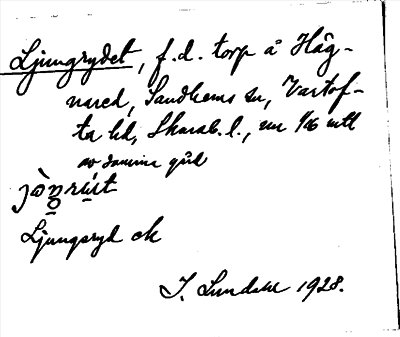 Ljungrydet, f.d. torp å Håg-
nared, Sandhems sn, Vartof-
ta hd, Skarab. l., nr 1/16 mtl
av samma gård
Ljungsryd ek
J. Lundahl 1928.